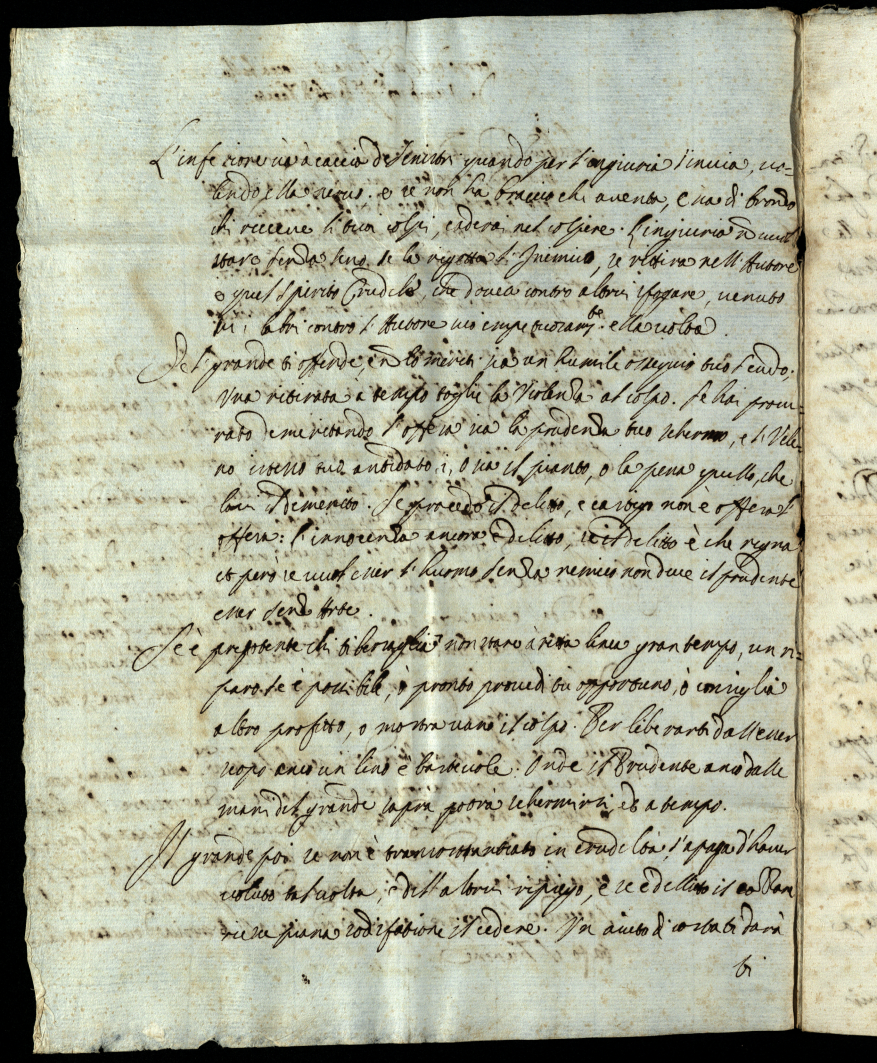 L'inferiore và à caccia de sinistri quando per l'ingiuria s'invia, vo=
lendo alla se non ha braccio chi aventa, e va di brando
chi riceve li tuoi colpi, caderà nel colpire. L'ingiuria n vuol
stare senza sino. Se la rigetta l'Inemico, se retira nell'Autore
e quel Spirito Crudele, che dovea contro altrui sfogare, venuto
contro l'Autore impetuosamte. e
Se'l grande ti offende, e n lo meriti sia un humile ossequio tuo scudo.
Una ritirata a tempo toglie la Violenza al colpo. Se hai procu=
rato demeritando l'offesa sia la prudenza tuo schermo, e'l Vele=
no istesso tuo antidato, o sia il pianto, o la pena quello, che
lavi il demerito. Se procede il delitto, e castigo non è offesa l'
offesa: l'innocenza ancora è delitto, se il delitto è che regna
et però se vuol esser l'huomo senza nemico non deve il prudente
esser senza Arte.
Se è prepotente chi ti bersaglia non stare à retta linea gran tempo, un ri=
paro se è possibile, ò pronto provedi tu opportuno, ò consiglia
altro profitto, o mostra vano il colpo. Per liberarti dall'esser
anco un lino è bastevole. Onde il Prudente anco dalle
mani del grande saprà potrà schermirsi ed a tempo.
Il grande poi se non è transostantiato in crudeltà, s'apaga d'haver
veduto tal volta, dell'altrui ripiego, e se è delitto il
piana sodisfatione il cedere. Un aiuto di costa ti darà
ti